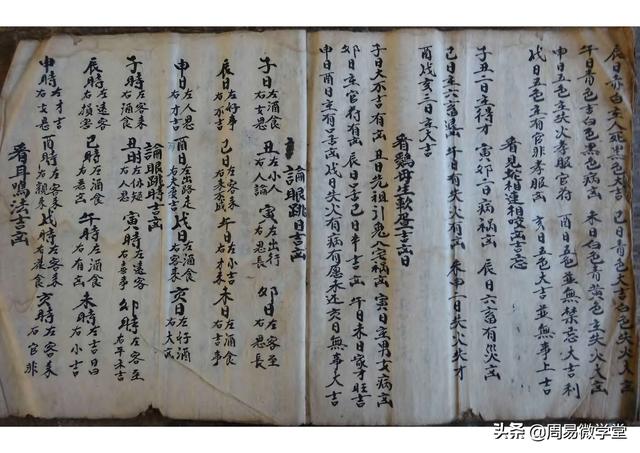 辰日赤白主人死 吉 巳日青色大吉白色大凶
午日青色吉白色黑色病凶 未日白色青黄色主失火大凶
申日五色主失火孝服官符 酉日五色並無禁忌大吉利
戌日五色主有官非孝服凶 亥日五色大吉並無事上吉
看見蛇相連相咬凶吉忘
子丑二日主得才 寅卯二日病禍凶 辰日六畜有災凶
巳日主六畜 午日有失火有凶 未申二日失火失才
酉戌亥三日主大吉
看鷄母生軟蛋吉凶日
子日大不吉有凶 丑日先祖引鬼入宅禍凶 寅日主男女病凶
卯日主官符有凶 辰日吉巳日半吉凶 午日未日家才旺吉
申日酉日主有口舌凶 戌日失火有病有愿未还亥日無事大吉
論眼跳日吉凶
子日左酒食右女思 丑左小人右人論 寅左出行右思長 卯日左客至右思長
辰日左好事右不吉 巳日左客来右来不成 午日左小吉右才来 未日左酒食右吉事
申日左人思右才吉 酉日左出路走右大吉 戌日左酒食右客来 亥日左好酒右大凶
論眼跳時吉凶
子時左客来右酒食 丑時左休疑右人思 寅時左遠客右喜事 卯時左客至右平未吉
辰時左遠客右損害 巳時左酒食右悪凶 午時左酒食右有凶 未時左吉日右小吉
申時左才吉右女思 酉時左客来右親来 戌時左客来右 食 亥時左客来右官非
看耳鳴法吉凶
头条 @周易微学堂